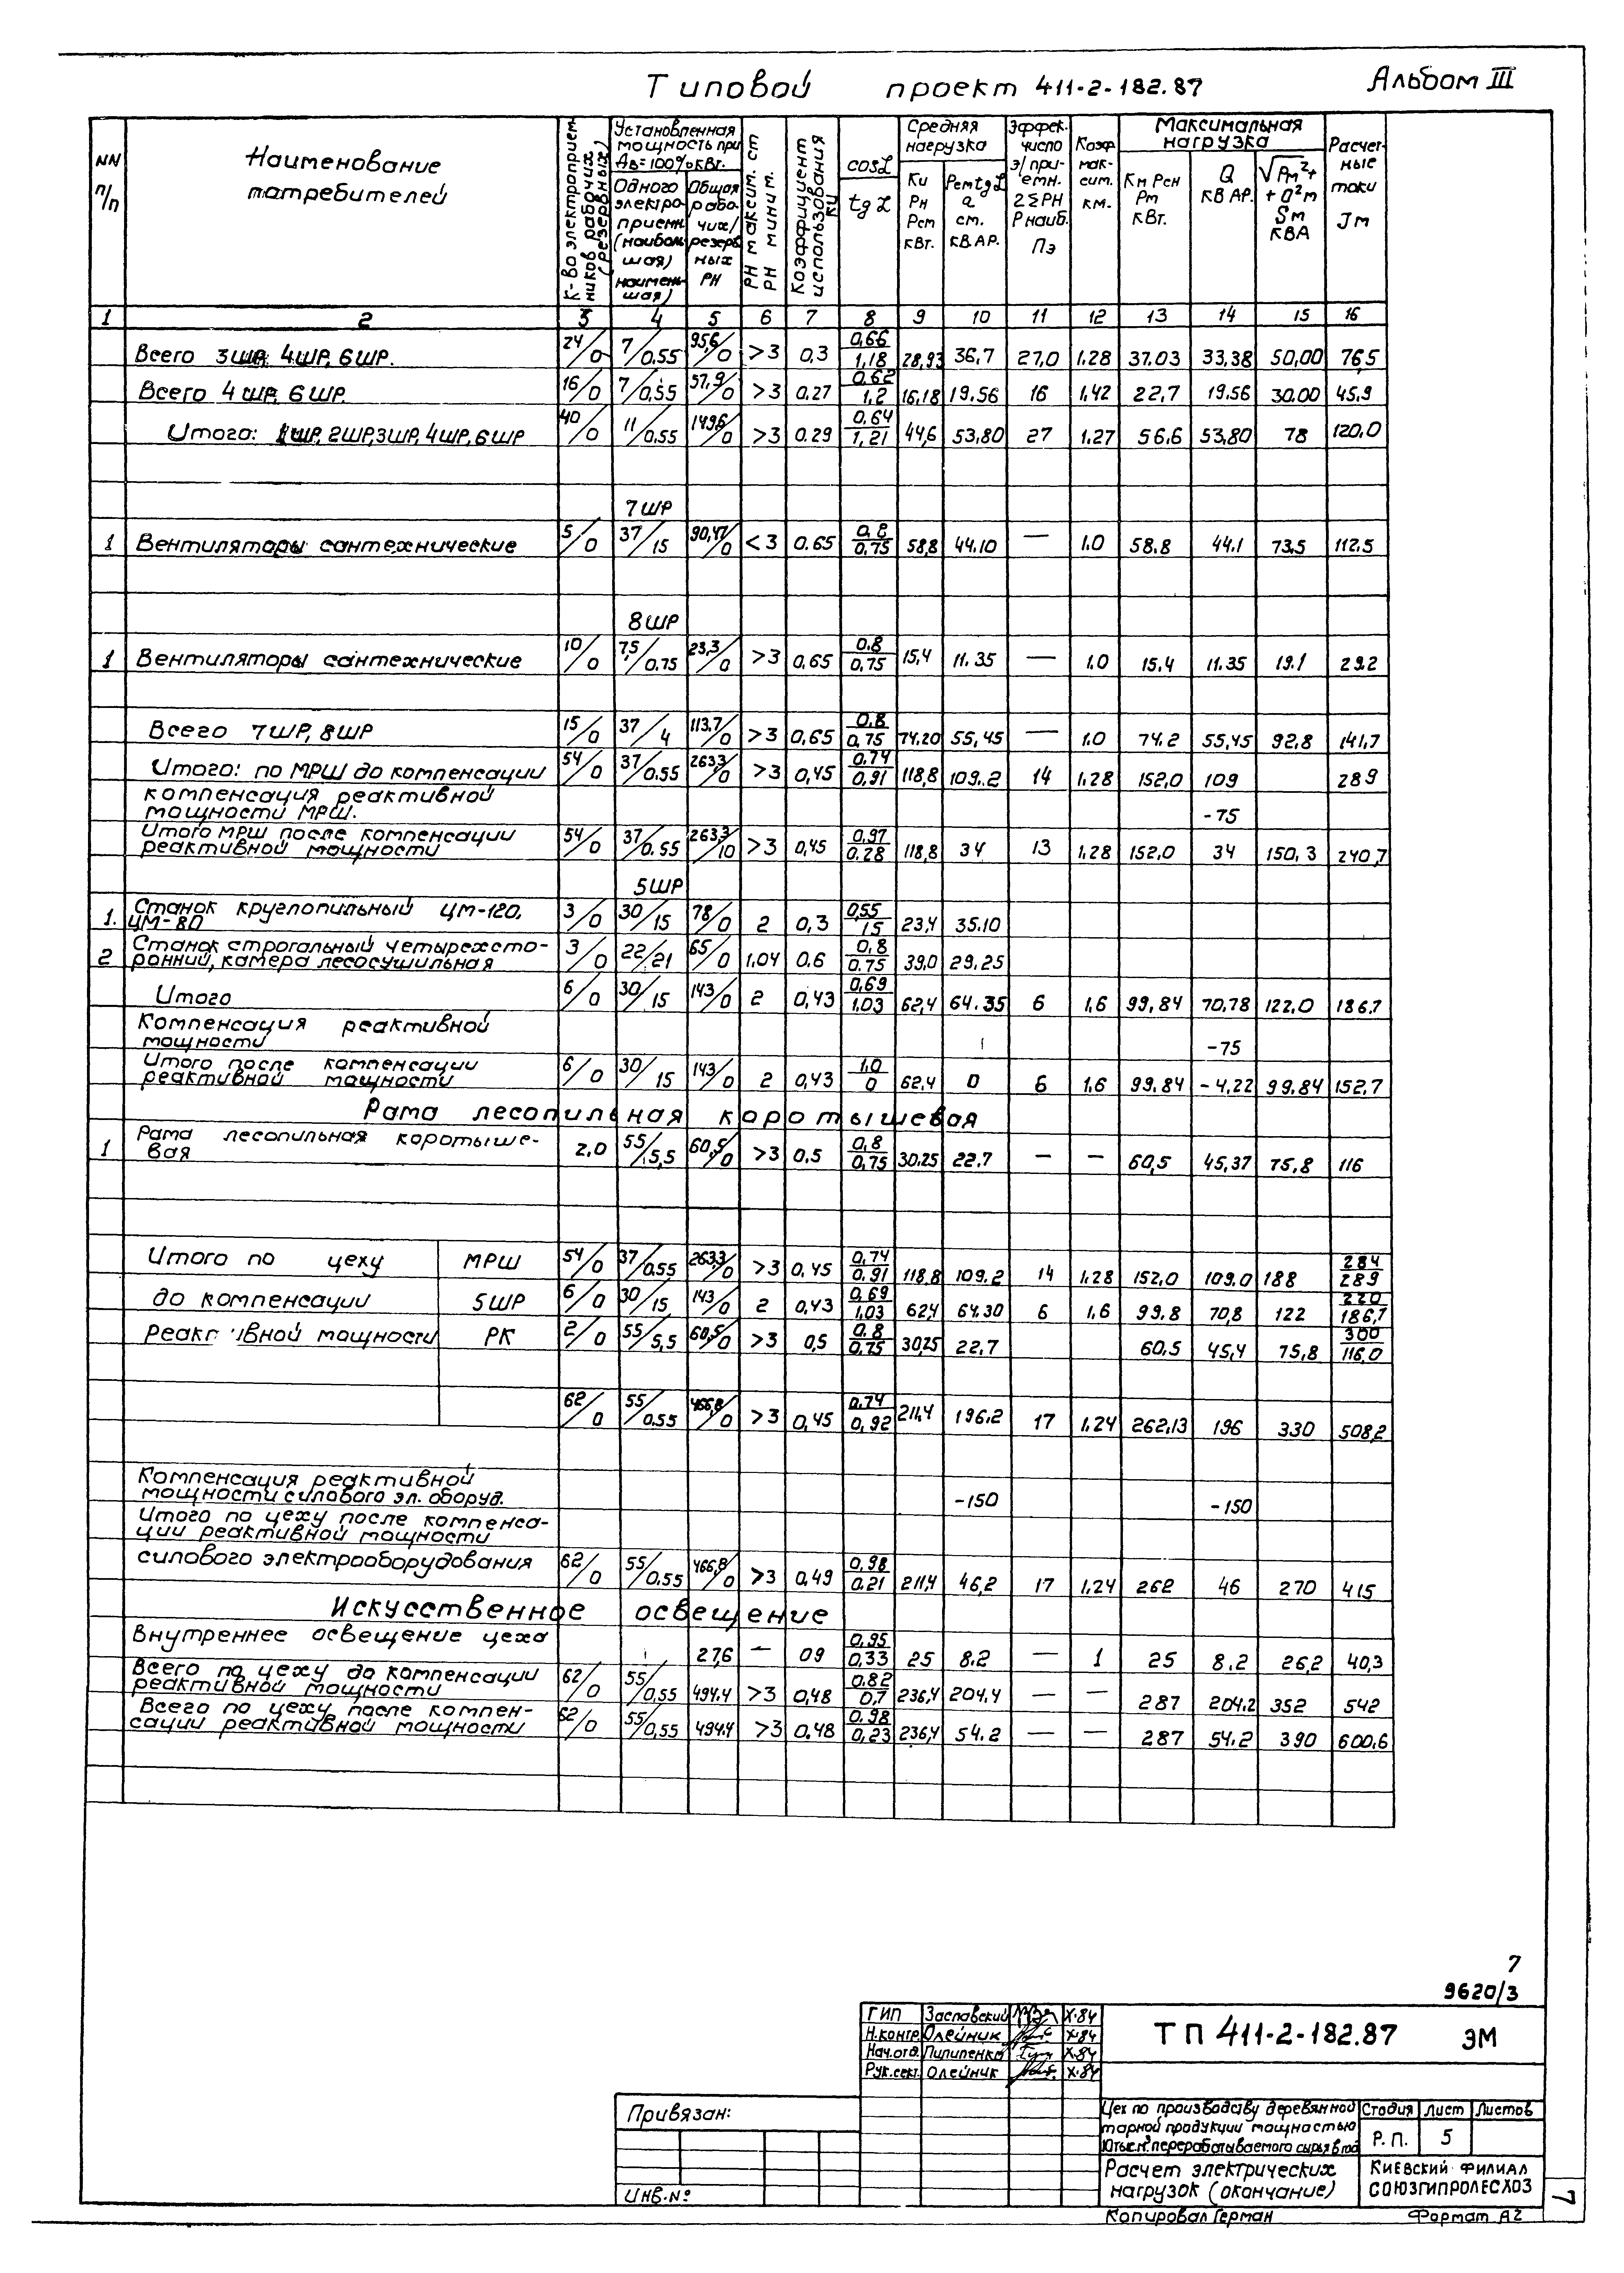 Типовой проект 411-2-182.87
Альбом III
NN п/п
Наименование потребителей
К-во электроприемников рабочих (резервных)
Установленная мощность при Дв=100% кВт.
Одного электроприемн. (наибольшая) наименьшая)
Общая рабочих/резервных РН
РН максим. ст РН миним.
Коэффициент использования ки
cosL tgL
Средняя нагрузка
Ки Рн Рсм кВт.
РсмtgL Q см. КВАР.
Эффек. число э/приемн. 2ΣРН Рнаиб. Пэ
Коэф мак-сим. км.
Максимальная нагрузка
Км Рсн Рм кВт.
Q КВАР.
√Рм²+ +Q²м Sм КВА
Расчетные токи Jм
1 2 3 4 5 6 7 8 9 10 11 12 13 14 15 16
Всего 3ШР, 4ШР, 6ШР. 24/0 7/0,55 95,6/0 >3 0,3 0,66/1,18 28,93 36,7 27,0 1.28 37.03 33,38 50,00 76,5
Всего 4ШР, 6ШР. 16/0 7/0,55 57,9/0 >3 0.27 0,62/1,2 16,18 19.56 16 1,42 22,7 19.56 30.00 45,9
Итого: 1ШР, 2ШР, 3ШР, 4ШР, 6ШР 40/0 11/0.55 149,6/0 >3 0.29 0.64/1,21 44,6 53,80 27 1.27 56.6 53,80 78 120,0
7ШР
1 Вентиляторы сантехнические 5/0 37/15 90,47/0 <3 0.65 0.8/0.75 58,8 44.10 — 1.0 58.8 44.1 73.5 112.5
8ШР
1 Вентиляторы сантехнические 10/0 7,5/0.75 23,3/0 >3 0,65 0.8/0.75 15,4 11.35 — 1.0 15.4 11.35 19.1 29.2
Всего 7ШР, 8ШР 15/0 37/4 113.7/0 >3 0,65 0.8/0.75 74.20 55,45 — 1.0 74.2 55,45 92,8 141,7
Итого: по МРШ до компенсации 54/0 37/0.55 263,3/0 >3 0,45 0.74/0,91 118,8 109.2 14 1.28 152,0 109 289
компенсация реактивной
мощности МРШ. -75
Итого МРШ после компенсации
реактивной мощности 54/0 37/0.55 263,3/10 >3 0,45 0,97/0.28 118,8 34 13 1,28 152,0 34 150,3 240,7
5ШР
1. Станок круглопильный ЦМ-120,
ЦМ-80 3/0 30/15 78/0 2 0,3 0,55/15 23,4 35.10
2 Станок строгальный четырехсто-
ронний, камера лесосушильная 3/0 22/21 65/0 1,04 0.6 0.8/0.75 39,0 29.25
Итого 6/0 30/15 143/0 2 0,43 0,69/1,03 62,4 64.35 6 1,6 99,84 70,78 122.0 186.7
Компенсация реактивной
мощности -75
Итого после компенсации
реактивной мощности 6/0 30/15 143/0 2 0,43 1.0/0 62,4 0 6 1,6 99.84 -4,22 99.84 152,7
Рама лесопильная коротышевая
1 Рама лесопильная коротыше-
вая 2,0 55/5,5 60,5/0 >3 0.5 0,8/0.75 30.25 22.7 — — 60,5 45,37 75,8 116
Итого по цеху МРШ 54/0 37/0.55 263,3/0 >3 0,45 0,74/0.91 118,8 109.2 14 1,28 152,0 109.0 188 284/289
до компенсации 5ШР 6/0 30/15 143/0 2 0,43 0.69/1,03 62,4 64.30 6 1,6 99.8 70,8 122 220/186,7
Реактивной мощности РК 2/0 55/5,5 60,5/0 >3 0,5 0.8/0.75 30,25 22.7 60.5 45,4 75,8 300/116,0
62/0 55/0.55 466,8/0 >3 0,45 0.74/0,92 211,4 196.2 17 1,24 262,13 196 330 508,2
Компенсация реактивной
мощности силового эл. оборуд. -150 -150
Итого по цеху после компенса-
ции реактивной мощности
силового электрооборудования 62/0 55/0.55 466,8/0 >3 0.49 0,98/0.21 211,4 46,2 17 1,24 262 46 270 415
Искусственное освещение
Внутреннее освещение цеха 27,6 — 09 0,95/0,33 25 8.2 — 1 25 8.2 26,2 40,3
Всего по цеху до компенсации
реактивной мощности 62/0 55/0,55 494.4 >3 0,48 0.82/0,7 236,4 204,4 — — 287 204.2 352 542
Всего по цеху после компен-
сации реактивной мощности 62/0 55/0,55 494.4 >3 0.48 0.98/0,23 236,4 54.2 — — 287 54.2 390 600.6
7
9620/3
ГИП Заславский X-84
Н.контр. Олейник X-84
Нач.отд. Пилипенко X-84
Рук.сект. Олейник X-84
ТП 411-2-182.87 ЭМ
Привязан:
Инв.№
Цех по производству деревянной
тарной продукции мощностью
10тыс.м³ перерабатываемого сырья в год
Стадия Лист Листов
Р.П. 5
Расчет электрических
нагрузок (окончание)
Киевский филиал
СОЮЗГИПРОЛЕСХОЗ
Копировал Герман
Формат А2
7